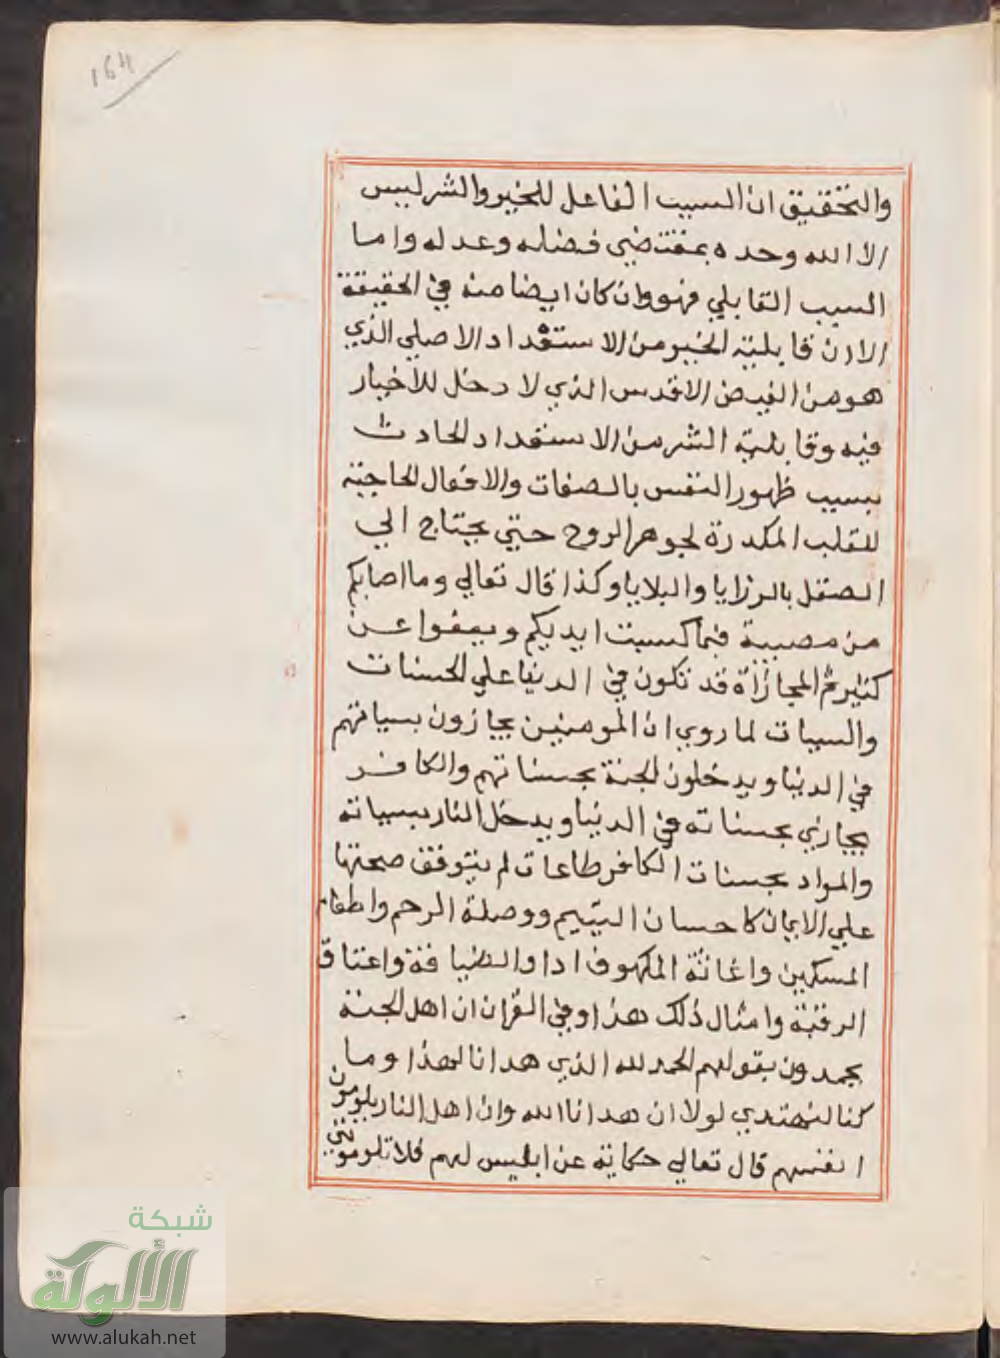 164
والتحقيق ان السبب الفاعل للخير والشر ليس
الا الله وحده بمقتضي فضله وعدله واما
السبب القابلي فهو وان كان ايضا منه في الحقيقة
الا ان قابلية الخير من الاستعداد الاصلي الذي
هو من الفيض الاقدس الذي لا دخل للاخيار
فيه وقابلية الشر من الاستعداد الحادث
بسبب ظهور النفس بالصفات والافعال الحاجبة
للقلب المكدرة لجوهر الروح حتي يحتاج الي
الصقل بالرزايا والبلايا وكذا قال تعالي وما اصابكم
من مصيبة فبما كسبت ايديكم ويعفوا عن
كثير ثم المجازاة قد تكون في الدنيا علي الحسنات
والسيات لما روي ان المومنين يجازون بسياتهم
في الدنيا ويدخلون الجنة بحسناتهم والكافر
يجازي بحسناته في الدنيا ويدخل النار بسياته
والمراد بحسنات الكافر طاعات لم يتوقف صحتها
علي الايمان كاحسان اليتيم ووصلة الرحم واطعام
المسكين واغاثة الملهوف اداوالضيافة واعتاق
الرقبة وامثال ذلك هذا وفي القران ان اهل الجنة
يحمدون بقولهم الحمد لله الذي هدانا لهذا وما
كنا لنهتدي لولا ان هدانا الله وان اهل النار يلومون
انفسهم قال تعالي حكاية عن ابليس لهم فلا تلوموني
شبكة
الألوكة
www.alukah.net